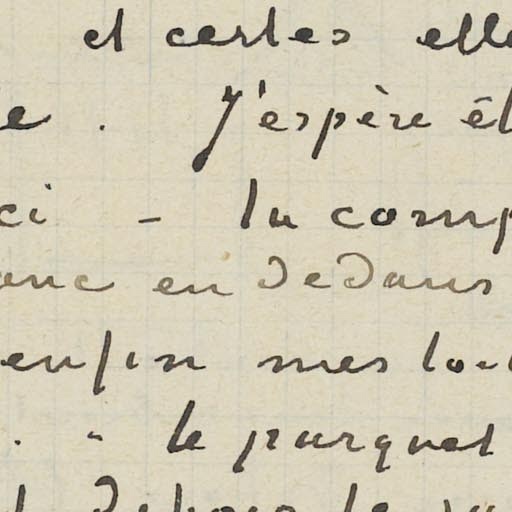 et certes elle
e. J'espère êt
ci - tu comp
anc en dedans
enfin mes to
. - le parquet
dehors le